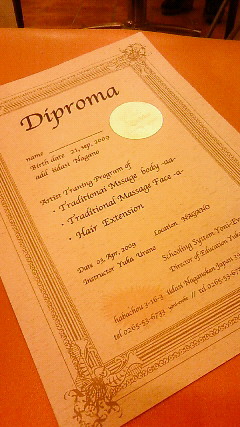 Diproma
name
Birth date 21, sep, 2009
add iidasi Nagano
Artist Traning Program of
· Traditional Mssage body -aa-
· Traditional Massage Face -a-
· Hair Extension
Date 03, Apr, 2009 Location NAGANO
Instructor Yuka
Schooling System Your
Director of Education Yuka
habachou 3-16-3 iidasi Naganoken Japan
tel 0265-53-6733 // tel 0265